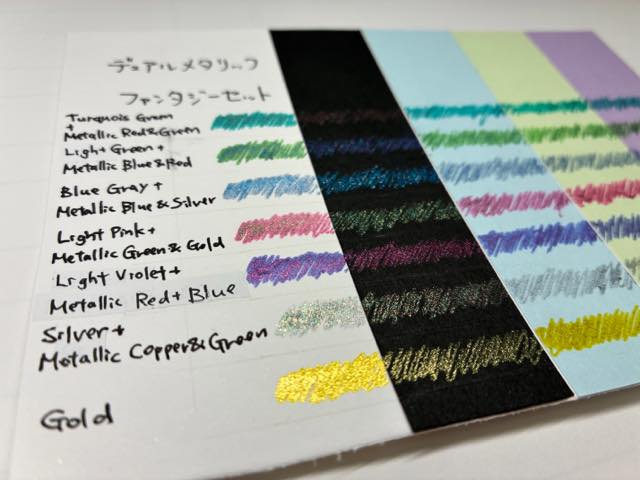 デュアルメタリック
ファンタジーセット
Turquois Green
+
Metallic Red&Green
Light Green +
Metallic Blue&Red
Blue Gray +
Metallic Blue & Silver
Light Pink +
Metallic Green & Gold
Light Violet +
Metallic Red + Blue
Silver +
Metallic Copper & Green
Gold